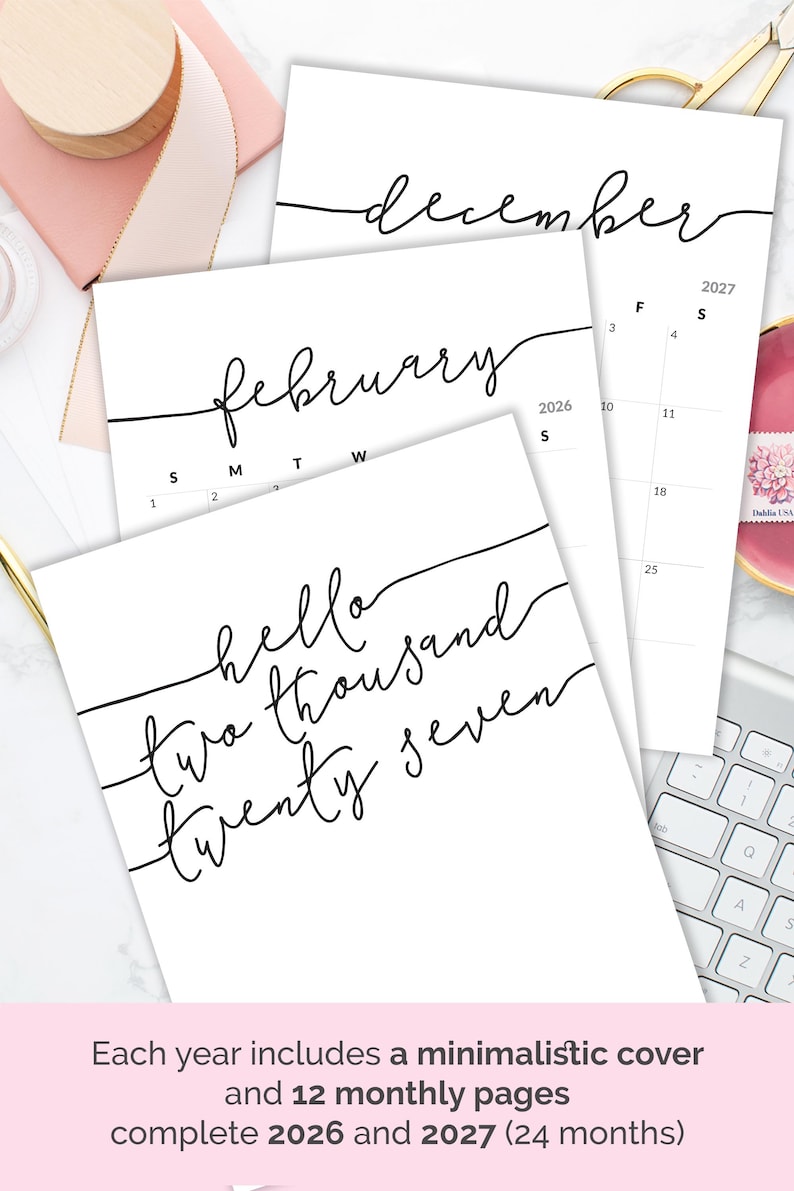 december
2027
F S
3 4
february
10 11
2026
S M T W S
1 2 3
18
Dahlia USA
hello
two thousand
twenty seven
25
tab
~
!
1
Q
A
S
Z
X
Each year includes a minimalistic cover
and 12 monthly pages
complete 2026 and 2027 (24 months)